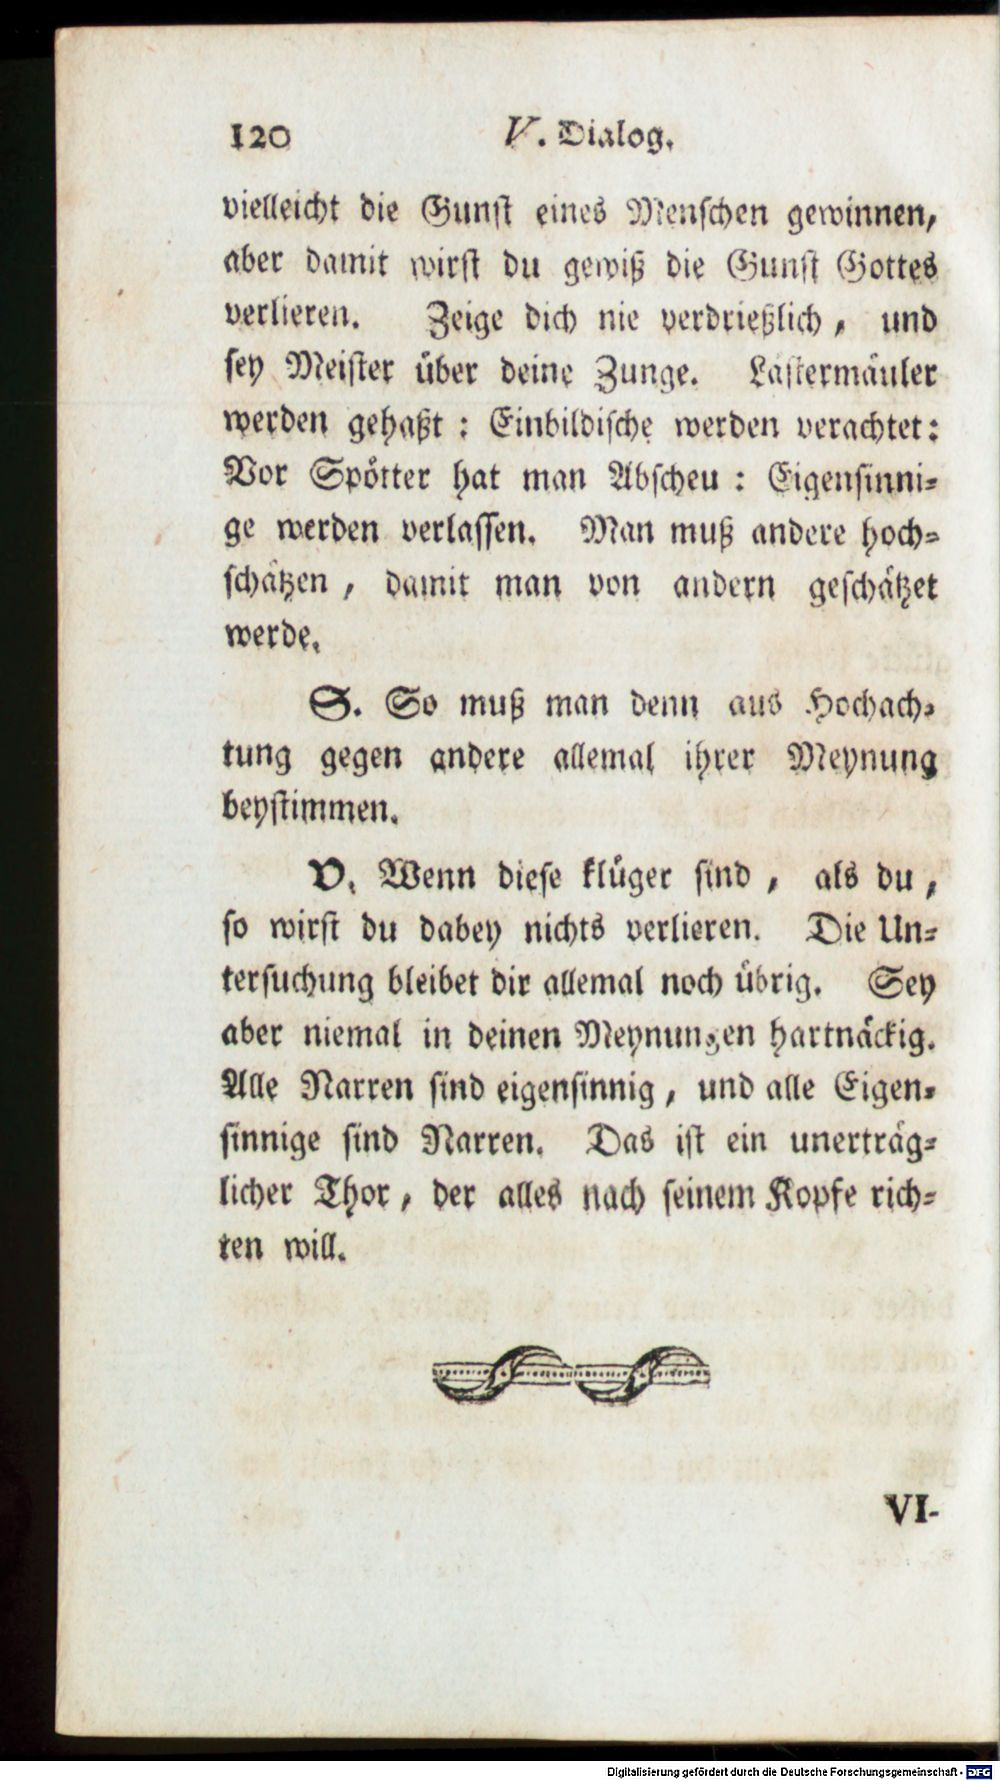 120 V. Dialog.
vielleicht die Gunst eines Menschen gewinnen,
aber damit wirst du gewiß die Gunst Gottes
verlieren. Zeige dich nie verdrießlich, und
sey Meister über deine Zunge. Lästermäuler
werden gehaßt: Einbildische werden verachtet:
Vor Spötter hat man Abscheu: Eigensinni-
ge werden verlassen. Man muß andere hoch-
schätzen, damit man von andern geschätzet
werde.
S. So muß man denn aus Hochach-
tung gegen andere allemal ihrer Meynung
beystimmen.
V. Wenn diese klüger sind, als du,
so wirst du dabey nichts verlieren. Die Un-
tersuchung bleibet dir allemal noch übrig. Sey
aber niemal in deinen Meynungen hartnäckig.
Alle Narren sind eigensinnig, und alle Eigen-
sinnige sind Narren. Das ist ein unerträg-
licher Thor, der alles nach seinem Kopfe rich-
ten will.
VI-
Digitalisierung gefördert durch die Deutsche Forschungsgemeinschaft - DFG